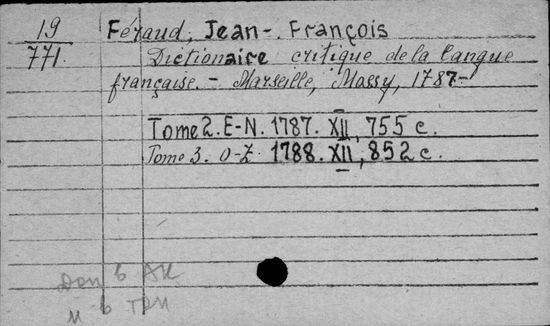 19
771.
Féraud, Jean-François
Dictionaire critique de la langue
française. – Marseille, Mossy, 1787–
Tome 2. E-N. 1787. XII, 755 c.
Tome 3. O-Z. 1788. XII, 852 c.